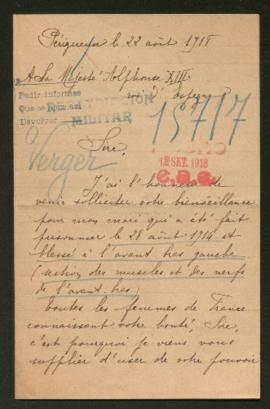 Périgueux le 22 août 1918
A Sa Majesté Alphonse XIII
roi d'Espagne
Pedir informes
Que se
Devolver
MILITAR
15717
Sire,
Verger
12 SET. 1918
J'ai l'honneur de
venir solliciter votre bienveillance
pour mon mari qui a été fait
prisonnier le 28 août 1914 et
blessé à l'avant bras gauche
(section des muscles et des nerfs
de l'avant-bras)
Toutes les femmes de France
connaissent votre bonté, Sire,
c'est pourquoi je viens vous
supplier d'user de votre pouvoir